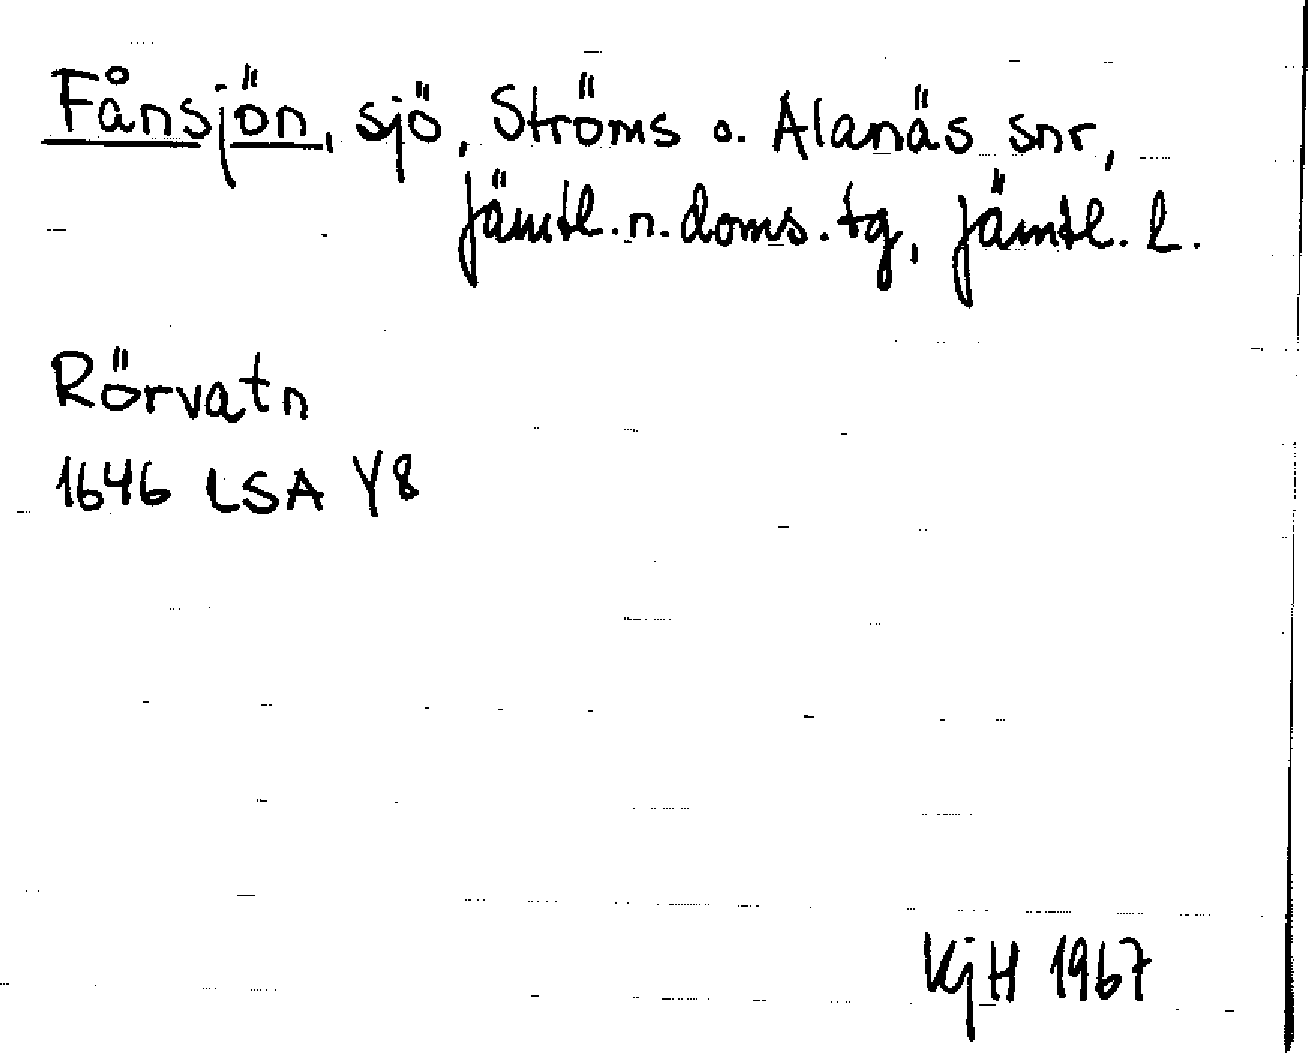 Fånsjön, sjö, Ströms o. Alanäs snr,
Jämtl. n. doms. tg, Jämtl. l.
Rörvatn
1646 LSA Y8
KjH 1967